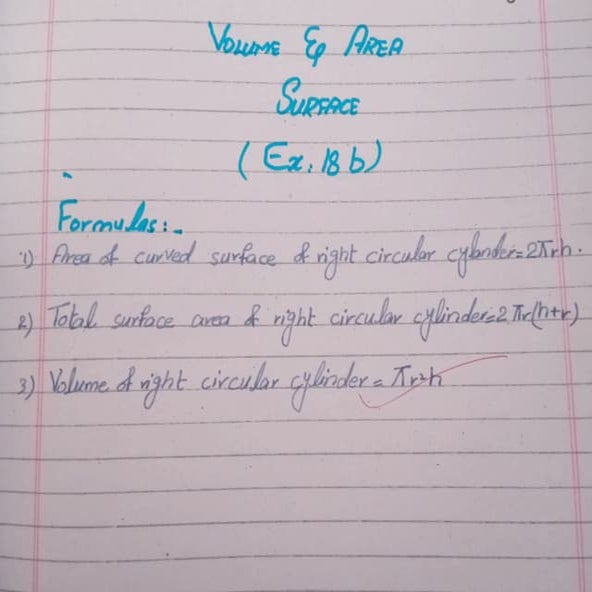 VOLUME & AREA
SURFACE
(Ex. 18 b)
Formulas:-
1) Area of curved surface of right circular cylinder = 2πrh.
2) Total surface area of right circular cylinder = 2πr(h+r)
3) Volume of right circular cylinder = πr²h